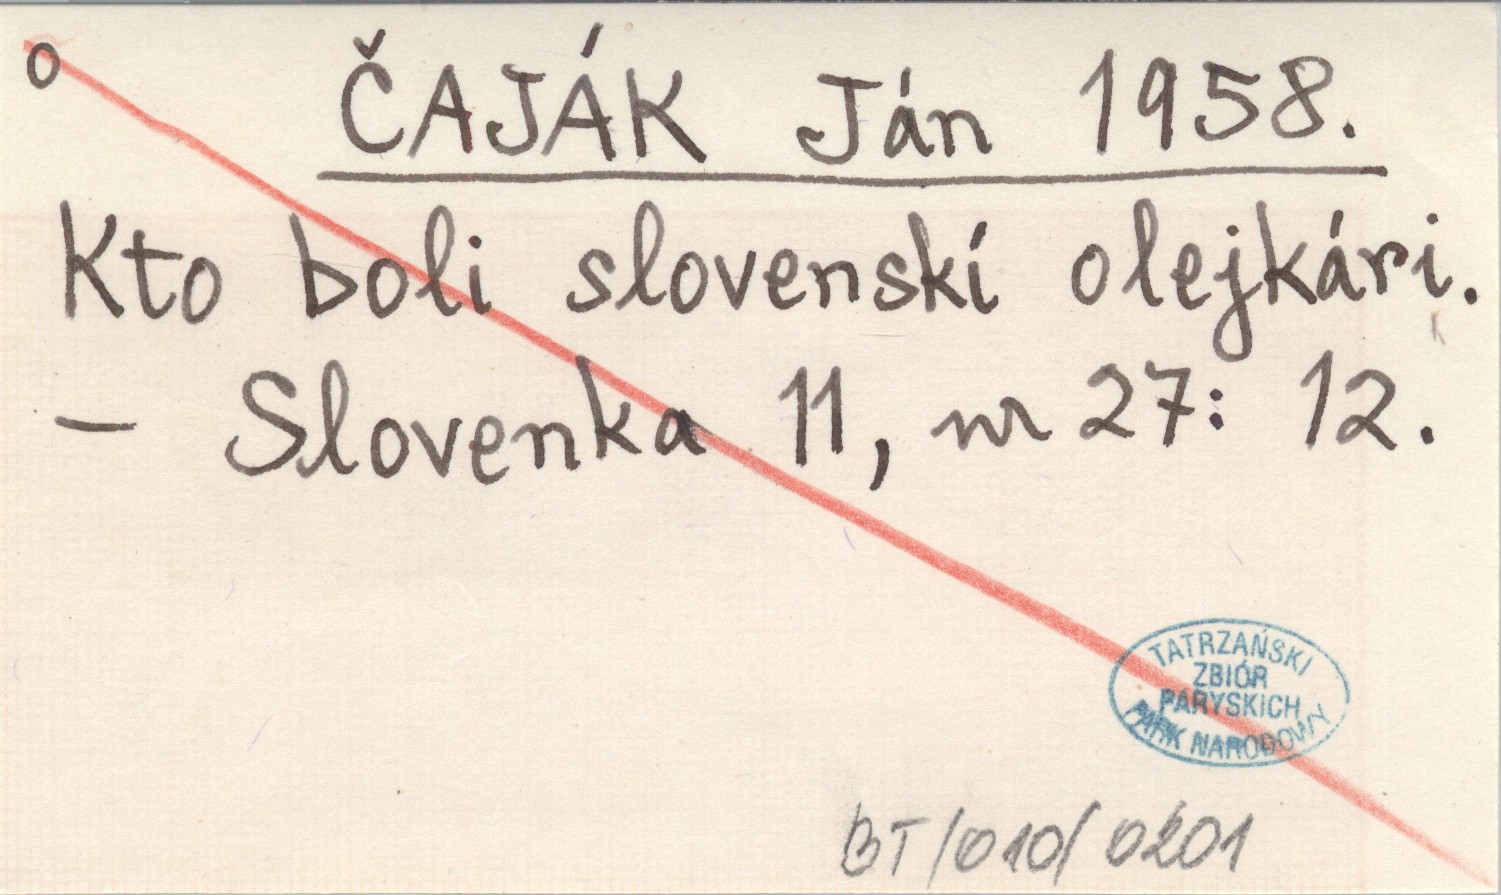 o
ČAJÁK Ján 1958.
Kto boli slovenskí olejkári.
– Slovenka 11, nr 27: 12.
TATRZAŃSKI
ZBIÓR
PARYSKICH
PARK NARODOWY
BT/010/0201